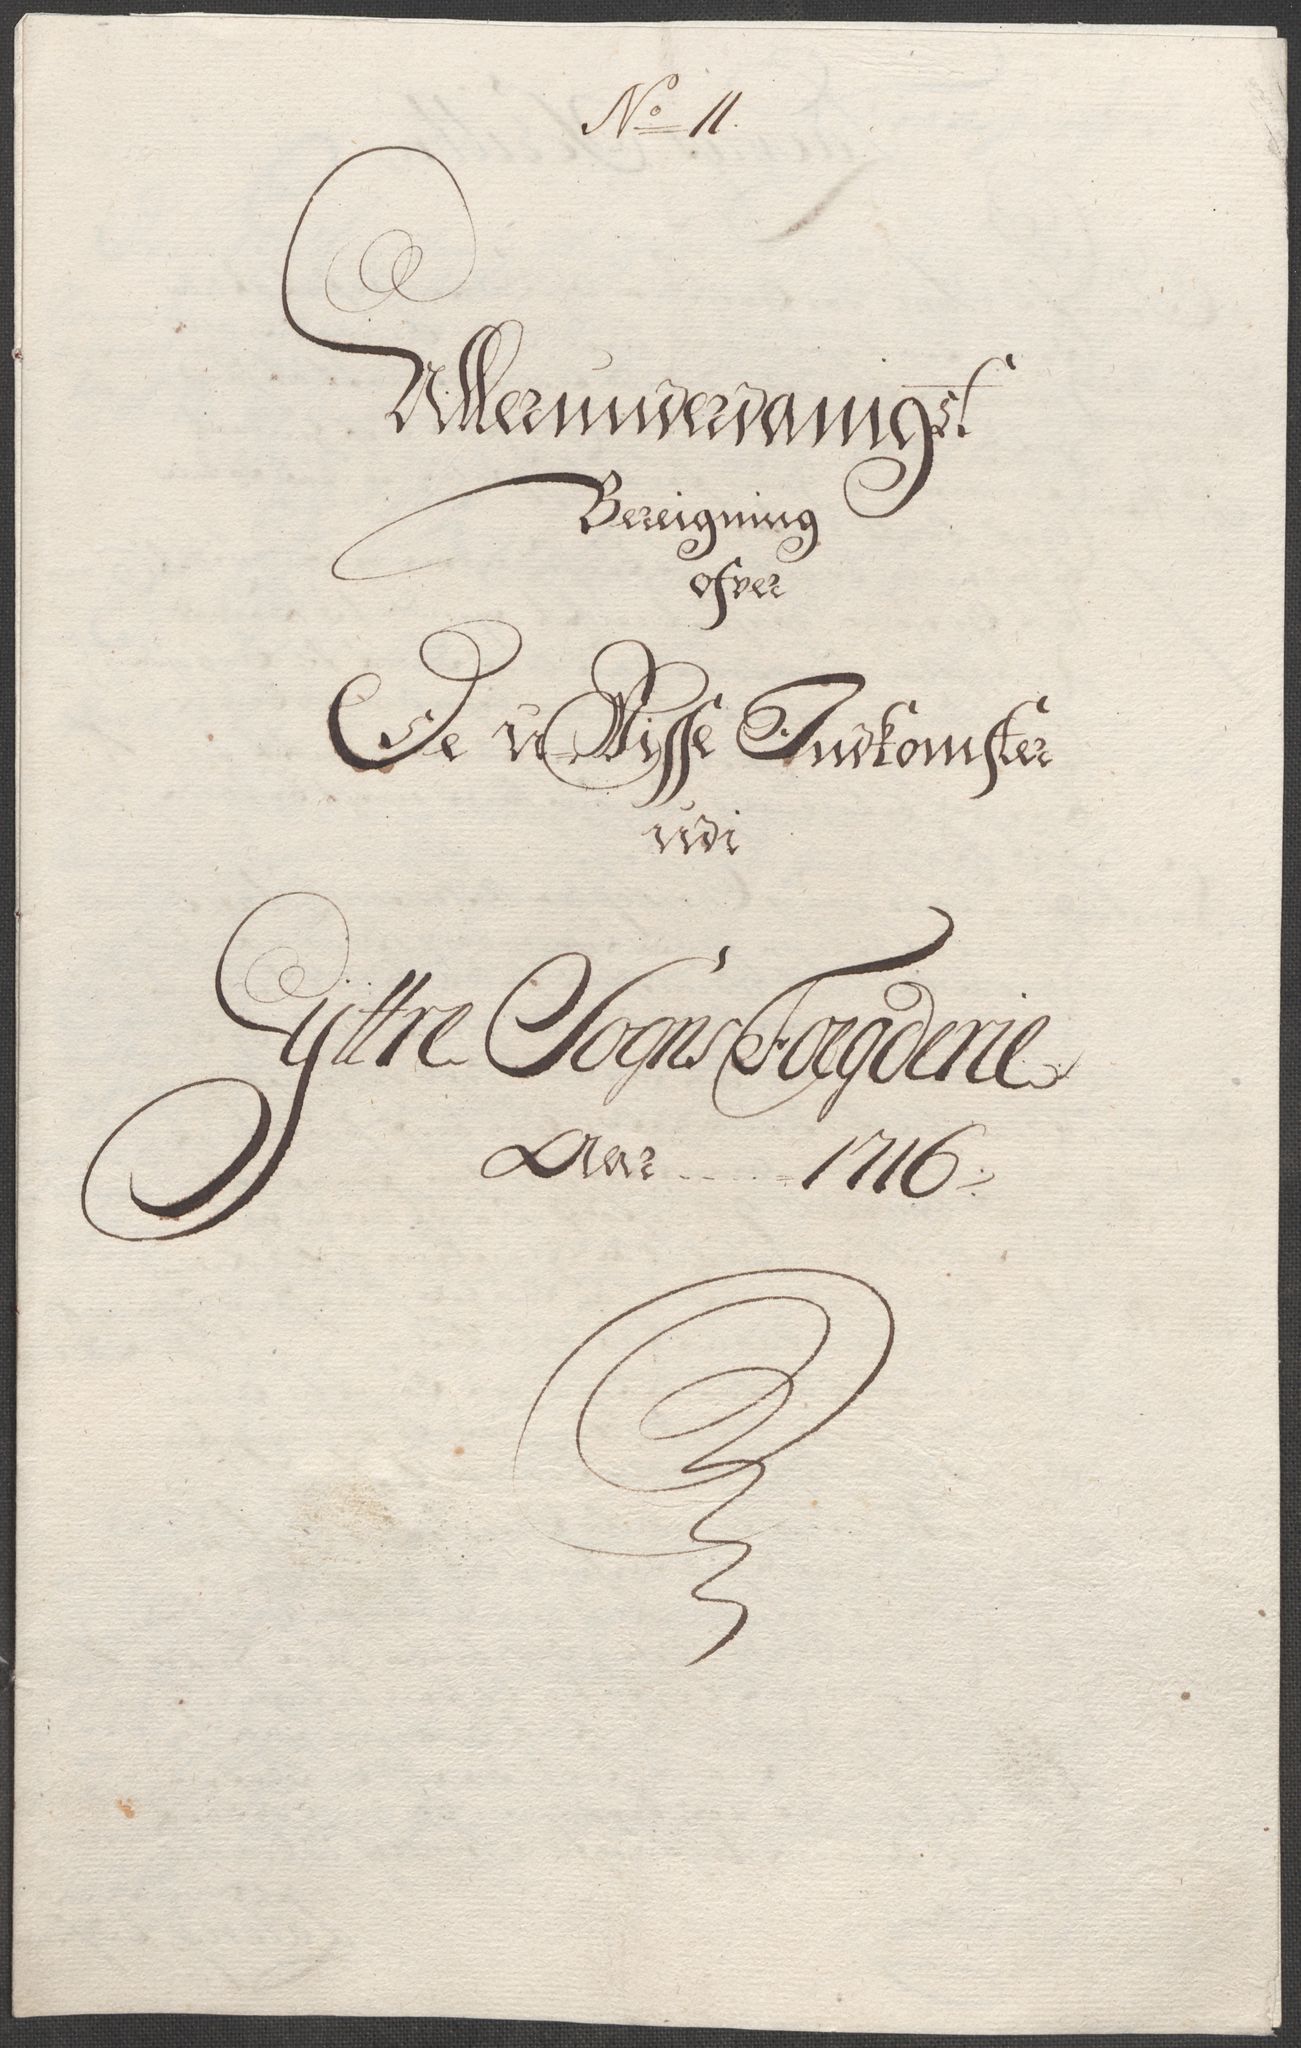 No 11.
Allerunderdanigst
Bereigning
ofver
De uVisse Indkomster
udi
Yttre Sogns Fogderie
Aar ..... 1716.